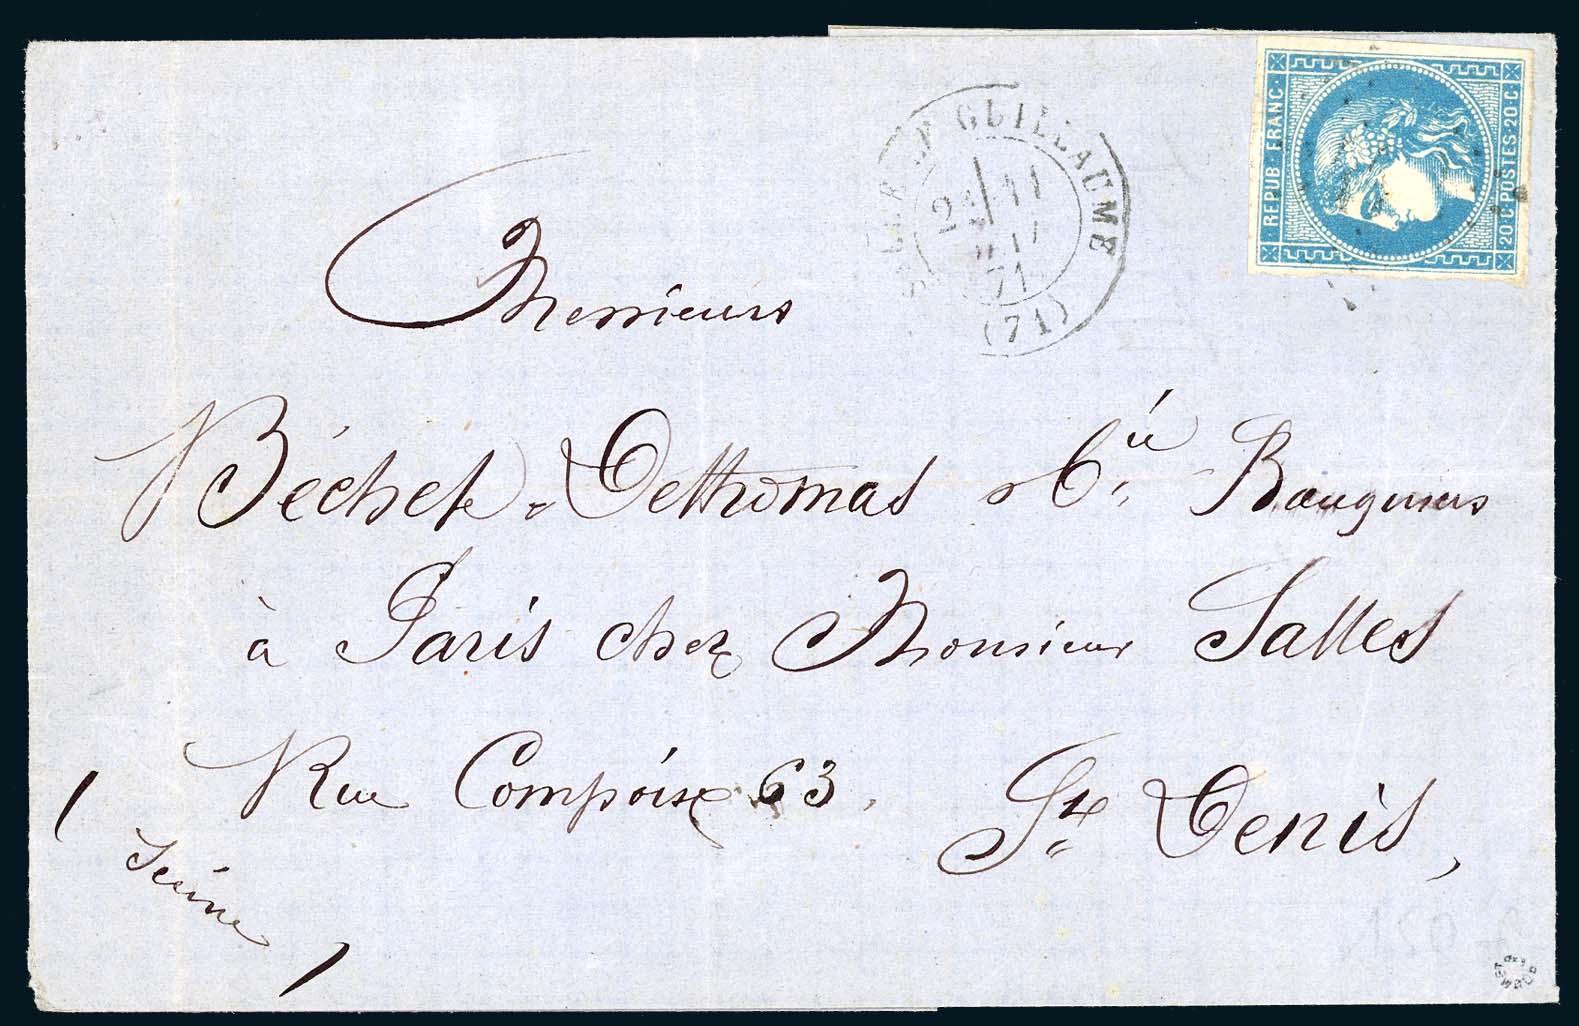 REPUB · FRANC ·
20 · C · POSTES · 20 · C
GUILLAUME
71
(71)
Messieurs
Béchet, Dethomas & Cie Banquiers
à Paris chez Monsieur Salles
Rue Compoise 63. St Denis,
(Seine)